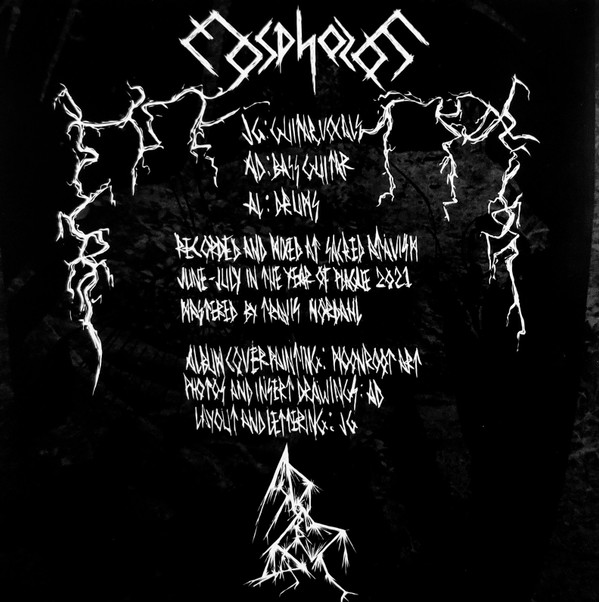 Eosphoros
JG: GUITAR, VOCALS
AD: BASS GUITAR
AL: DRUMS
RECORDED AND MIXED AT SACRED ATAVISM
JUNE-JULY IN THE YEAR OF PLAGUE 2021
MASTERED BY TRAVIS NORDAHL
ALBUM COVER PAINTING: MOONROOT ART
PHOTOS AND INSERT DRAWINGS: AD
LAYOUT AND LETTERING: JG